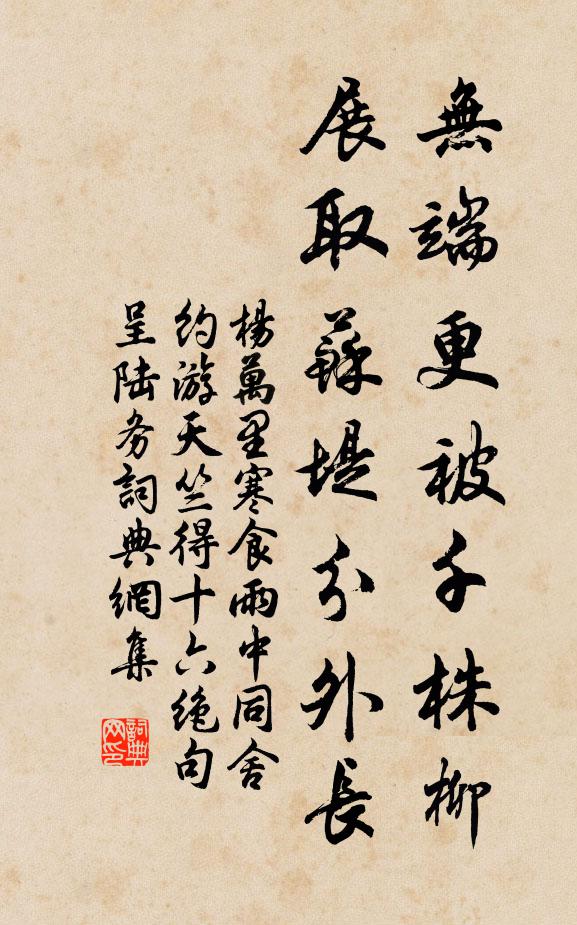 無端更被千株柳
展取蘇堤分外長
楊萬里寒食雨中同舍
約游天竺得十六绝句
呈陆务詞典網集
詞典
网印